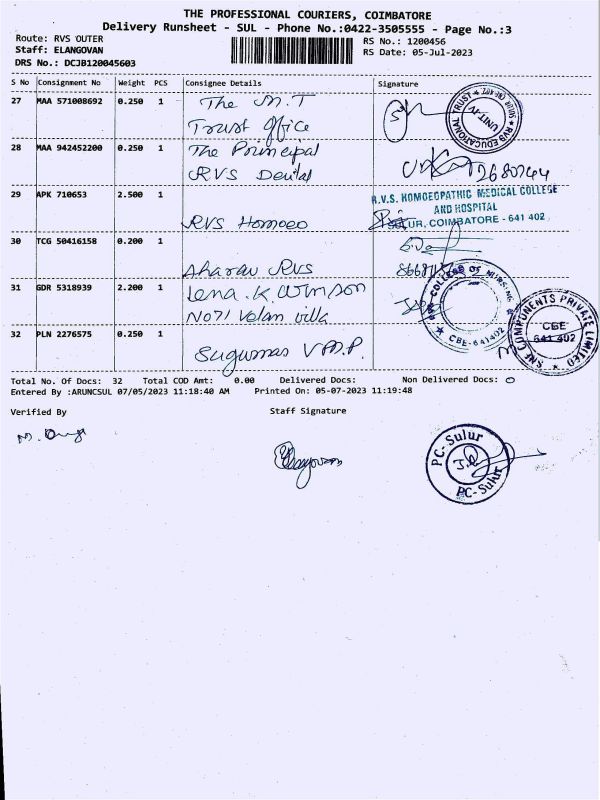 THE PROFESSIONAL COURIERS, COIMBATORE
Delivery Runsheet - SUL - Phone No.:0422-3505555 - Page No.:3
Route: RVS OUTER
Staff: ELANGOVAN
DRS No.: DCJB120045603
RS No.: 1200456
RS Date: 05-Jul-2023
S No Consignment No Weight PCS Consignee Details Signature
27 MAA 571008692 0.250 1 The M.T
Trust Office
RVS EDUCATIONAL TRUST UNIT-IV
28 MAA 942452200 0.250 1 The Principal
RVS Dental
29 APK 710653 2.500 1 RVS Homoeo
R.V.S. HOMOEOPATHIC MEDICAL COLLEGE
AND HOSPITAL
SULUR, COIMBATORE - 641 402
30 TCG 50416158 0.200 1 RVS
31 GDR 5318939 2.200 1
No71 Velan villa
COLLEGE OF NURSING
CBE-641402
32 PLN 2276575 0.250 1
SNE COMPONENTS PRIVATE LIMITED
CBE
641 402
Total No. Of Docs: 32 Total COD Amt: 0.00 Delivered Docs: Non Delivered Docs: 0
Entered By :ARUNCSUL 07/05/2023 11:18:40 AM Printed On: 05-07-2023 11:19:48
Verified By Staff Signature
Elangovan
PC-Sulur
PC-Sulur